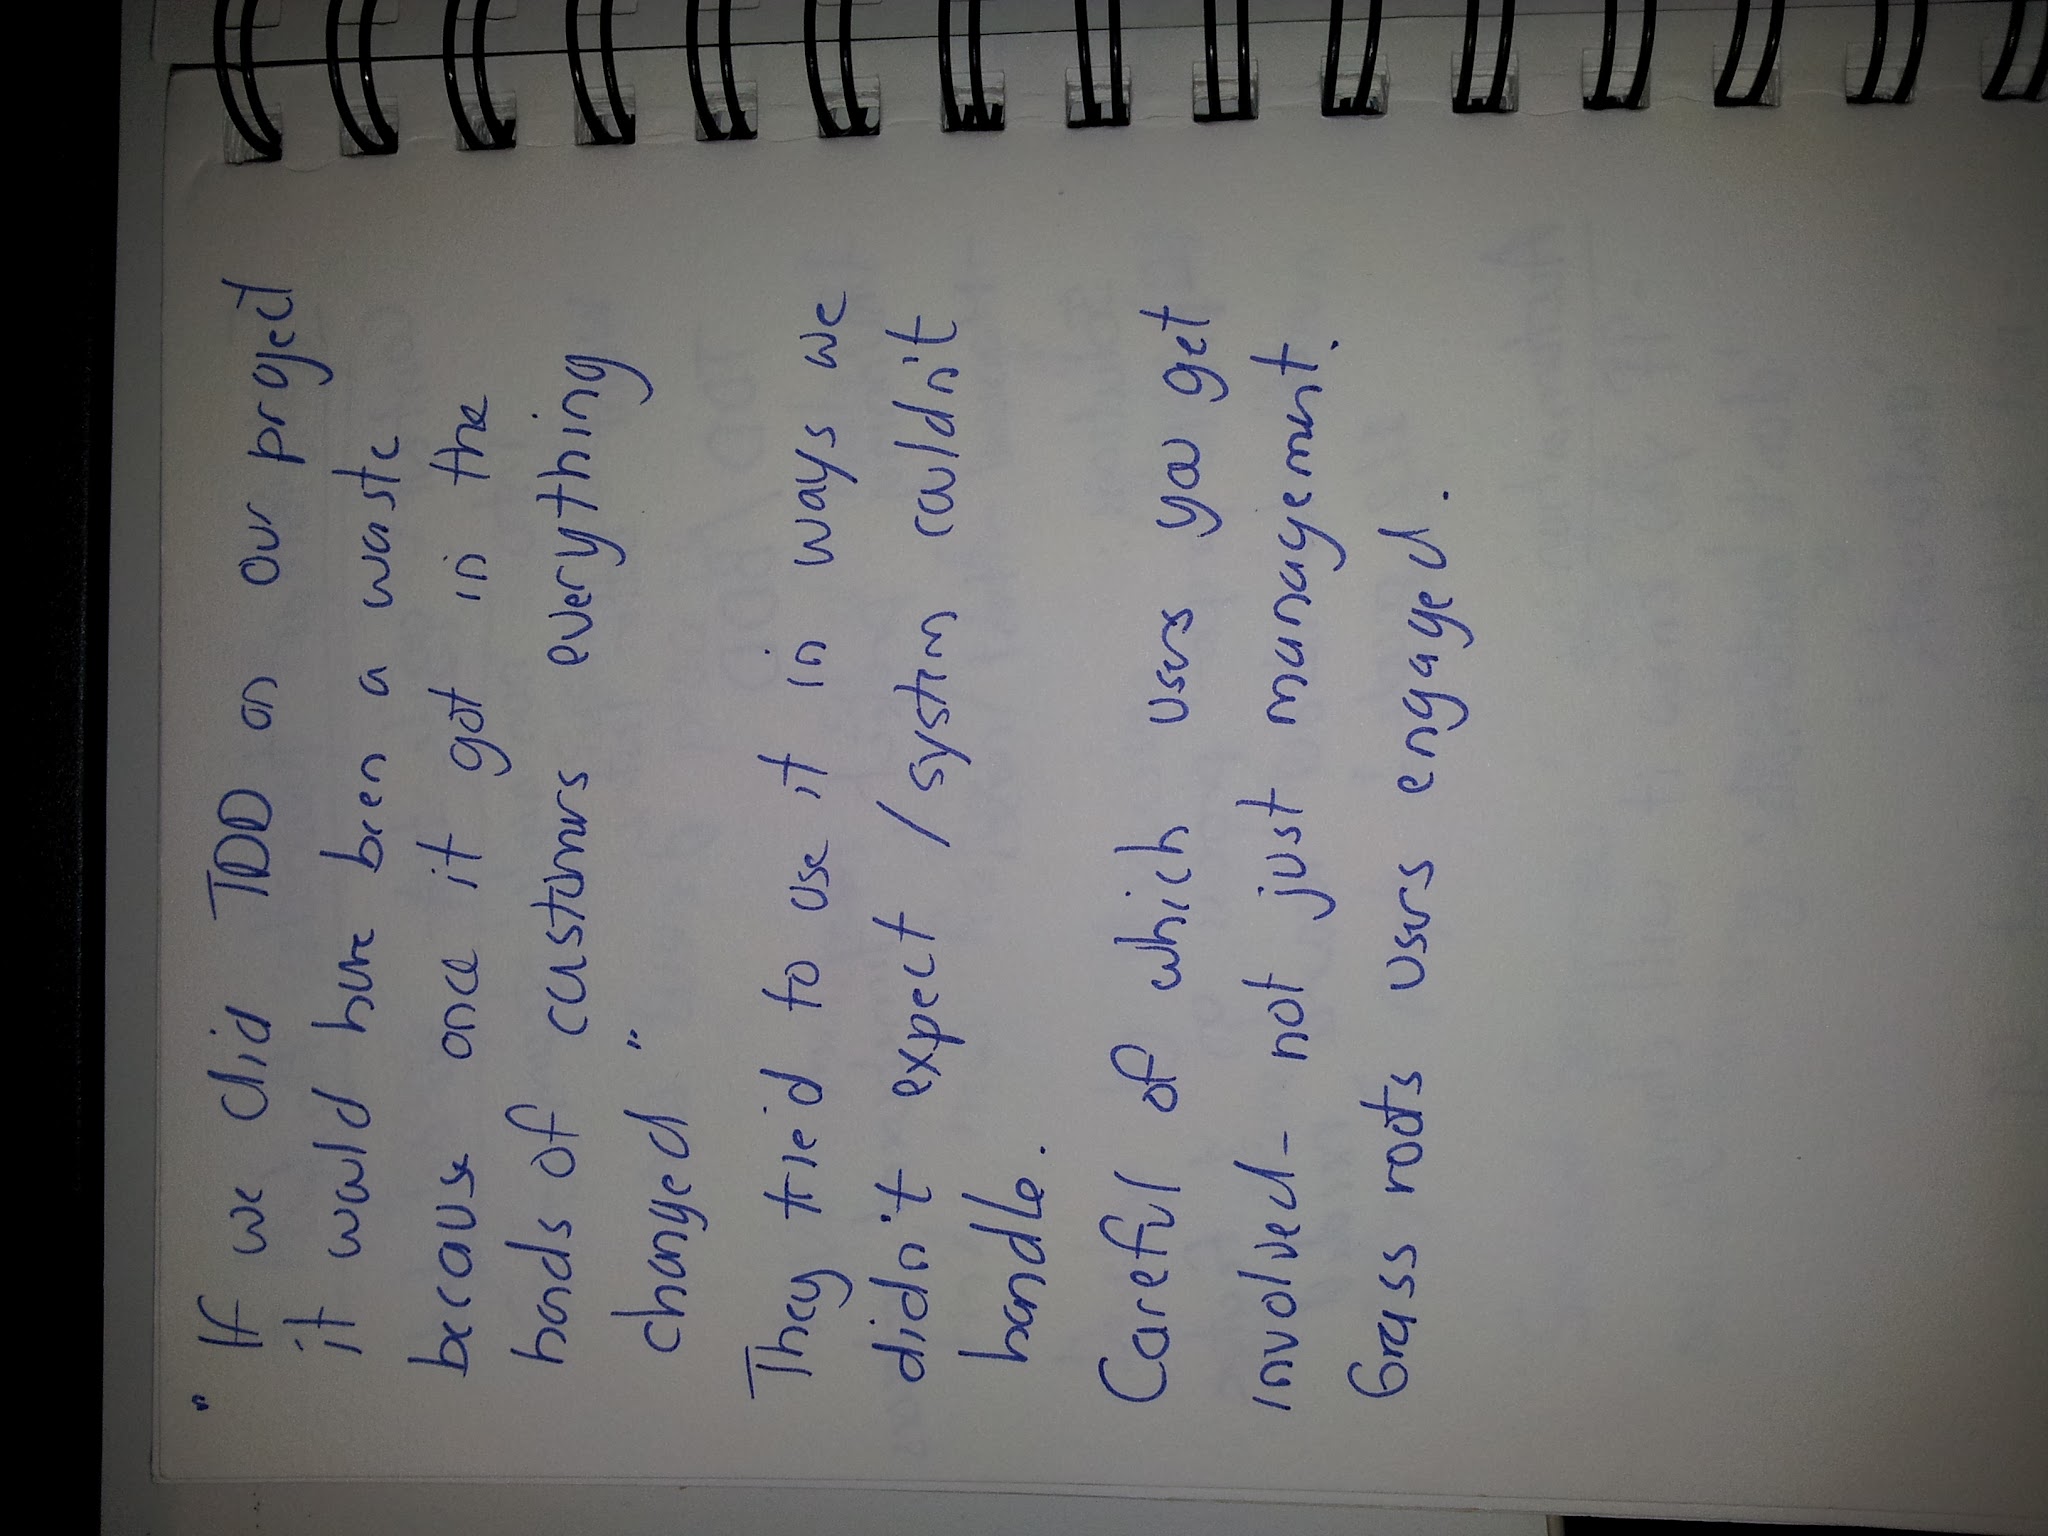 " If we did TDD on our project
it would have been a waste
because once it got in the
hands of customers everything
changed "
They tried to use it in ways we
didn't expect / system couldn't
handle.
Careful of which users you get
involved - not just management.
Grass roots users engaged.